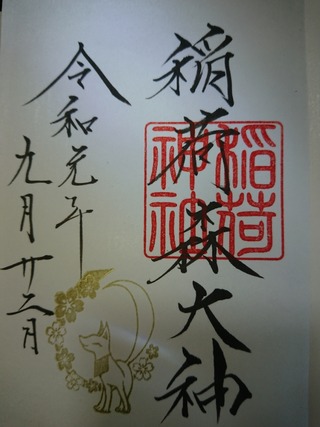 稲荷森大神
稲荷
神社
令和元年
九月廿二月